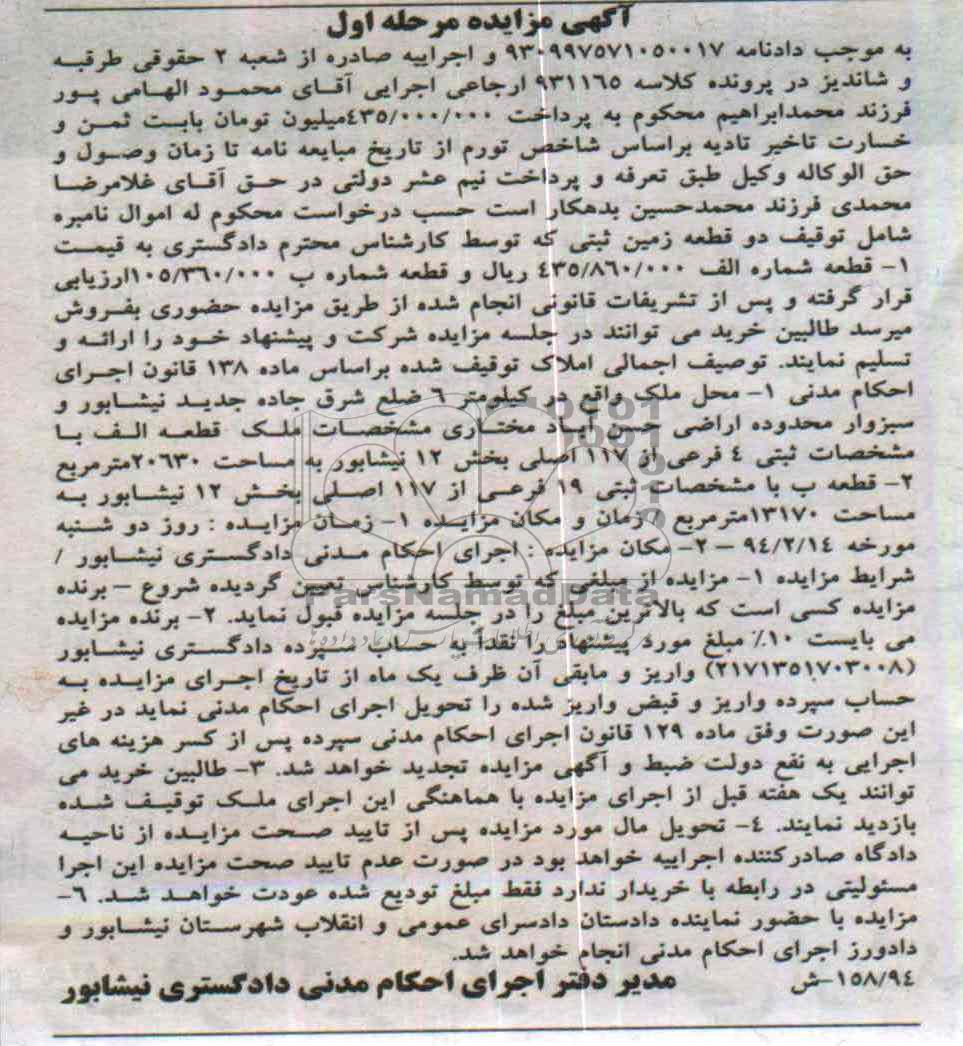 آگهی مزایده مرحله اول
به موجب دادنامه ۹۳۰۹۹۷۵۷۱۰۵۰۰۱۷ و اجراییه صادره از شعبه ۲ حقوقی طرقبه
و شاندیز در پرونده کلاسه ۹۳۱۱۶۵ ارجاعی اجرایی آقای محمود الهامی پور
فرزند محمدابراهیم محکوم به پرداخت ۴۳۵/۰۰۰/۰۰۰میلیون تومان بابت ثمن و
خسارت تاخیر تادیه براساس شاخص تورم از تاریخ مبایعه نامه تا زمان وصول و
حق الوکاله وکیل طبق تعرفه و پرداخت نیم عشر دولتی در حق آقای غلامرضا
محمدی فرزند محمدحسین بدهکار است حسب درخواست محکوم له اموال نامبره
شامل توقیف دو قطعه زمین ثبتی که توسط کارشناس محترم دادگستری به قیمت
۱- قطعه شماره الف ۴۳۵/۸۶۰/۰۰۰ ریال و قطعه شماره ب ۱۰۵/۳۶۰/۰۰۰ارزیابی
قرار گرفته و پس از تشریفات قانونی انجام شده از طریق مزایده حضوری بفروش
میرسد طالبین خرید می توانند در جلسه مزایده شرکت و پیشنهاد خود را ارائه و
تسلیم نمایند. توصیف اجمالی املاک توقیف شده براساس ماده ۱۳۸ قانون اجرای
احکام مدنی ۱- محل ملک واقع در کیلومتر ۶ ضلع شرق جاده جدید نیشابور و
سبزوار محدوده اراضی حسن آباد مختاری مشخصات ملک قطعه الف با
مشخصات ثبتی ۴ فرعی از ۱۱۷ اصلی بخش ۱۲ نیشابور به مساحت ۲۰۶۳۰مترمربع
۲- قطعه ب با مشخصات ثبتی ۱۹ فرعی از ۱۱۷ اصلی بخش ۱۲ نیشابور به
مساحت ۱۳۱۷۰مترمربع / زمان و مکان مزایده ۱- زمان مزایده : روز دو شنبه
مورخه ۹۴/۲/۱۴ – ۲- مکان مزایده : اجرای احکام مدنی دادگستری نیشابور /
شرایط مزایده ۱- مزایده از مبلغی که توسط کارشناس تعیین گردیده شروع – برنده
مزایده کسی است که بالاترین مبلغ را در جلسه مزایده قبول نماید. ۲- برنده مزایده
می بایست ۱۰٪ مبلغ مورد پیشنهاد را نقداً به حساب سپرده دادگستری نیشابور
(۲۱۷۱۳۵۱۷۰۳۰۰۸) واریز و مابقی آن ظرف یک ماه از تاریخ اجرای مزایده به
حساب سپرده واریز و قبض واریز شده را تحویل اجرای احکام مدنی نماید در غیر
این صورت وفق ماده ۱۲۹ قانون اجرای احکام مدنی سپرده پس از کسر هزینه های
اجرایی به نفع دولت ضبط و آگهی مزایده تجدید خواهد شد. ۳- طالبین خرید می
توانند یک هفته قبل از اجرای مزایده با هماهنگی این اجرای ملک توقیف شده
بازدید نمایند. ۴- تحویل مال مورد مزایده پس از تایید صحت مزایده از ناحیه
دادگاه صادرکننده اجراییه خواهد بود در صورت عدم تایید صحت مزایده این اجرا
مسئولیتی در رابطه با خریدار ندارد فقط مبلغ تودیع شده عودت خواهد شد. ۶-
مزایده با حضور نماینده دادستان دادسرای عمومی و انقلاب شهرستان نیشابور و
دادورز اجرای احکام مدنی انجام خواهد شد.
۱۵۸/۹۴-ش مدیر دفتر اجرای احکام مدنی دادگستری نیشابور
ParsNamadData